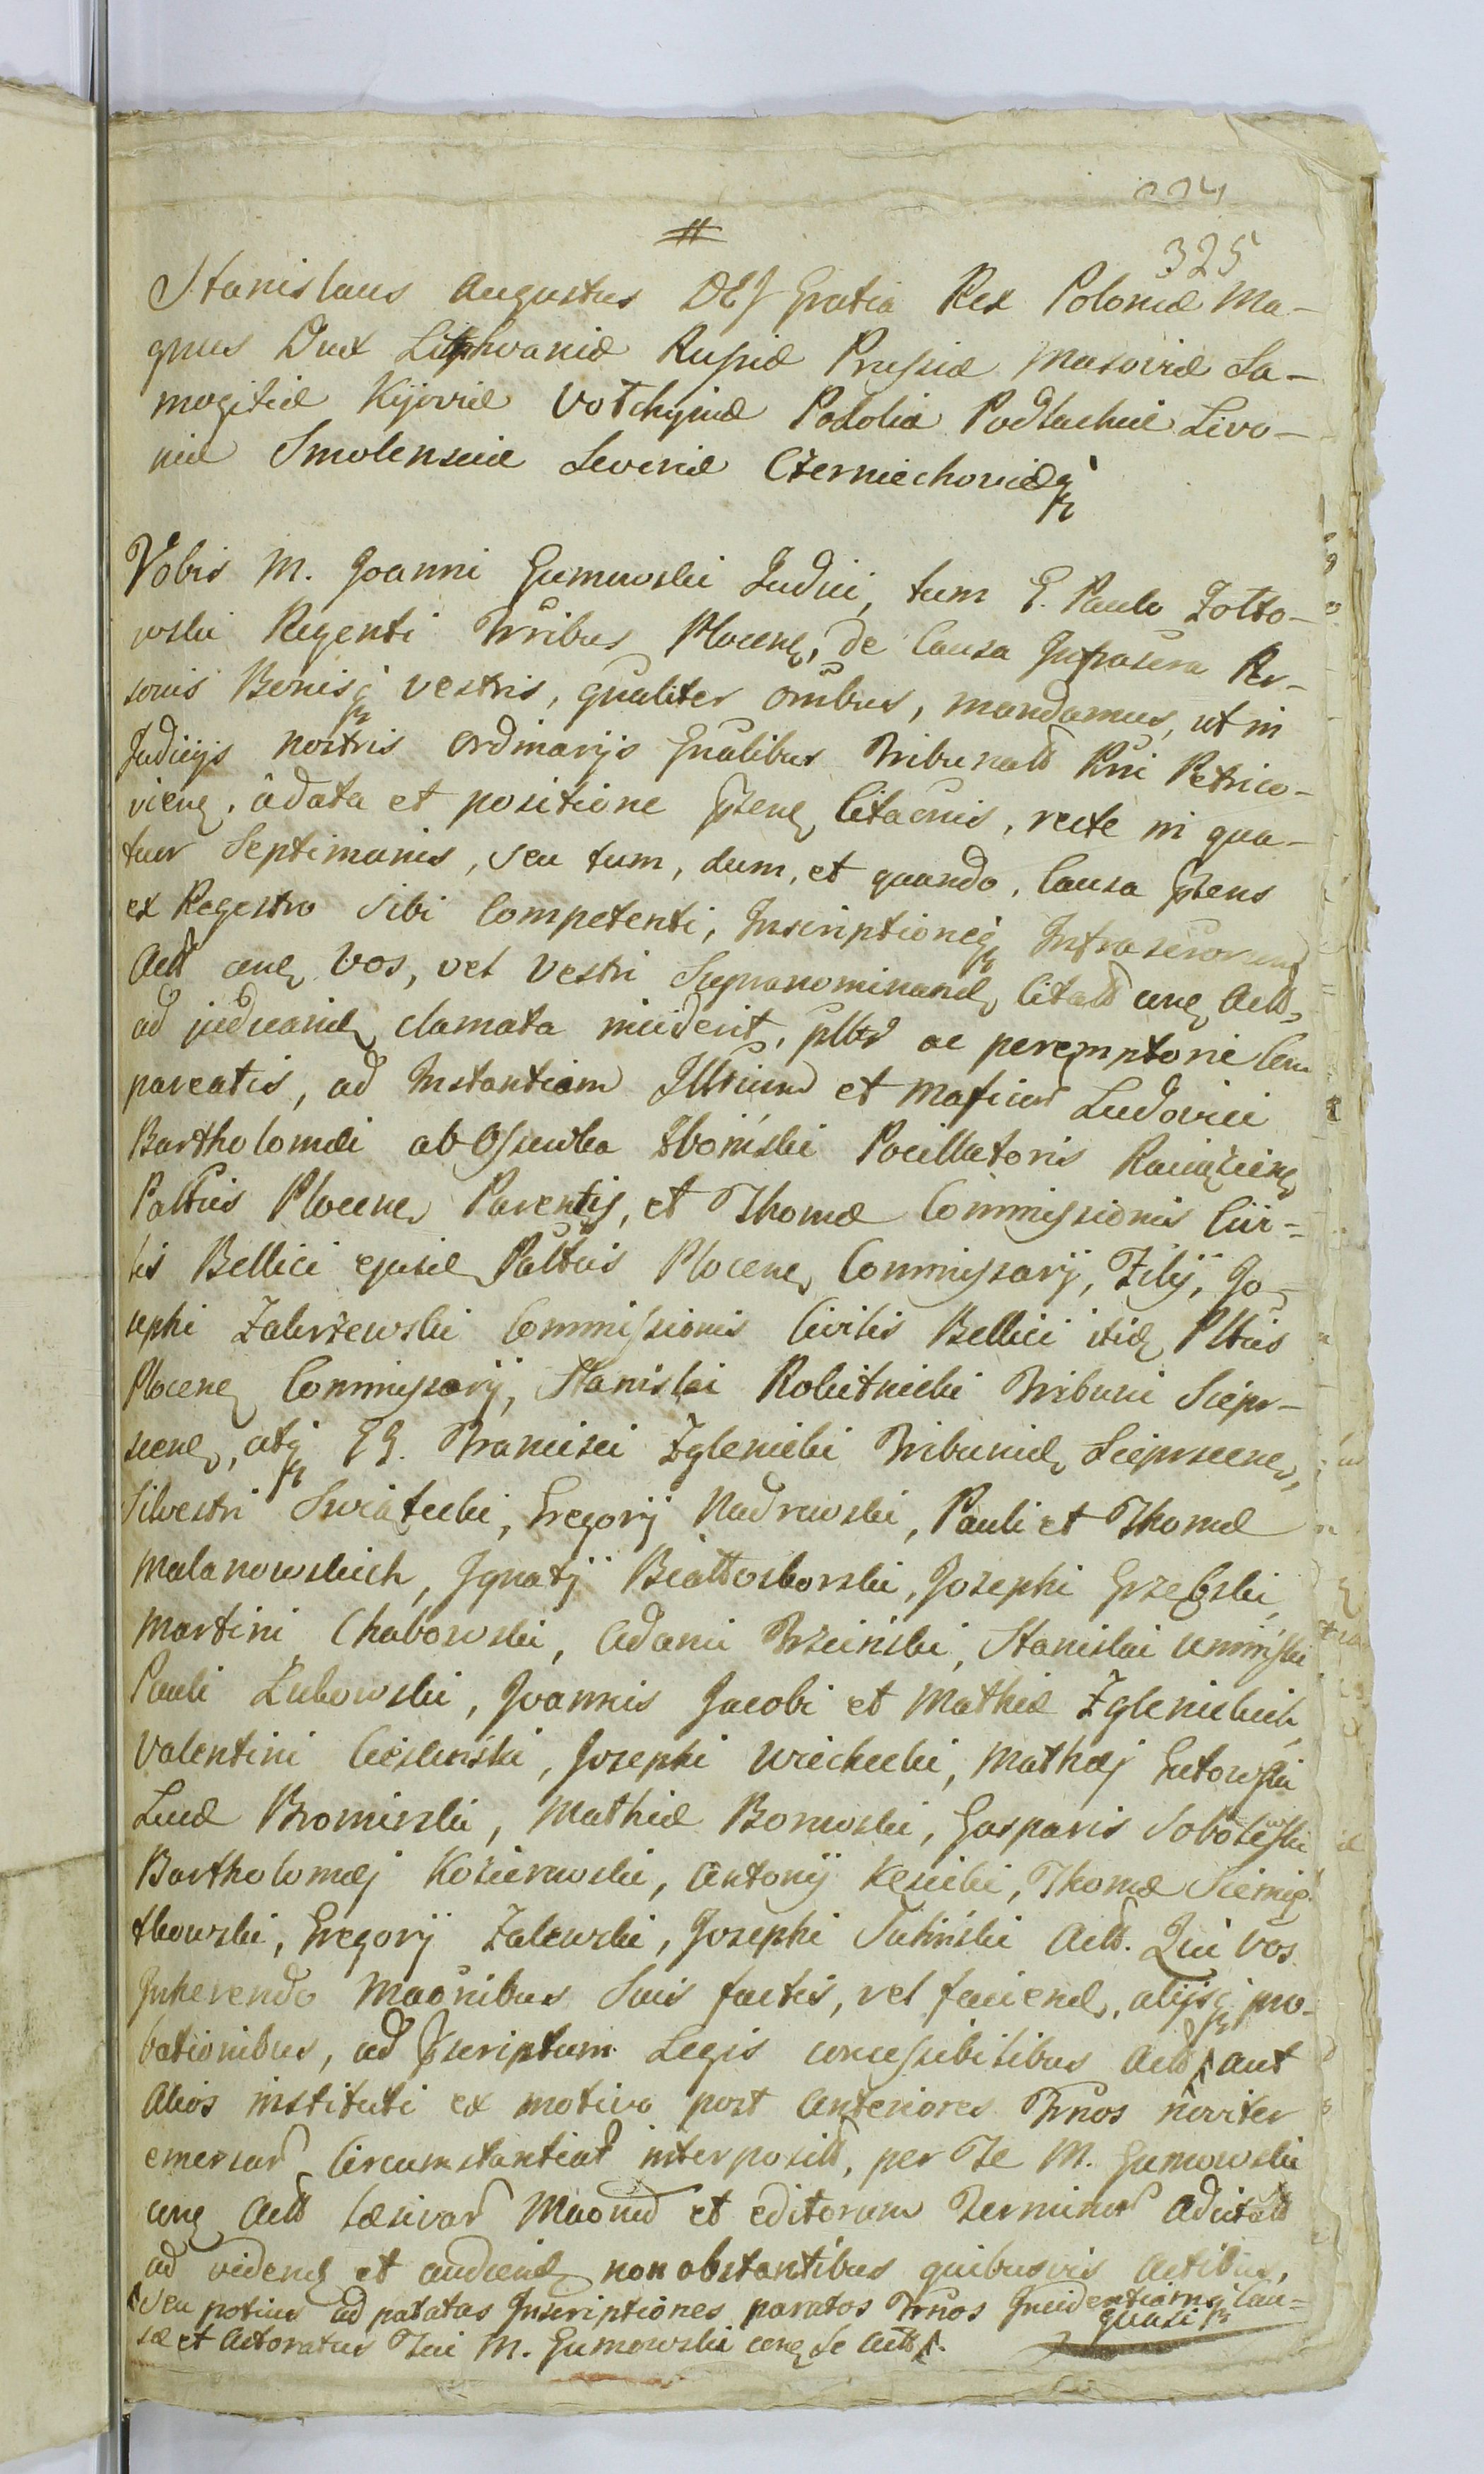 224
325
#
Stanislaus Augustus DEJ Gratia Rex Poloniæ Ma-
gnus Dux Lithvaniæ Russiæ Prussiæ Masoviæ Sa-
mogitiæ Kijoviæ Volchyniæ Podolia Podlachiæ Livo-
niæ Smolensciæ Severiæ Czerniechoviæq
Vobis M. Joanni Gumowski Judici, tum G. Paulo Zołto-
wski Regenti Trribus Plocen, de Causa Infrascra Per-
sonis Bonisq vestris, qualiter omibus, mandamus, ut in
Judicijs nostris Ordinarijs Gnalibus Tribunals Rni Petrico-
vien, à data et positione Psen Citaonis, recte in qua-
tuor Septimanis, seu tum, dum, et quando, Causa Psens
ex Regestro Sibi Competenti, Inscriptioneq Infrascrorum
Actt cum vos, vel Vestri Supranominand Citatt cum Actt,
ad judicand clamata inciderit, pltr ac peremptorie Com
pareatis, ad Instantiam Illrium et Mafcior Ludovici
Bartholomæi ab Ossuwka Zboiński Pocillatoris Raciązien
Palttus Plocen Parentis, et Thomæ Commissionis Civi-
lis Bellici ejusd Palttus Plocen Commissarij, Filij, Jo-
sephi Zakrzewski Commissionis Civilis Bellici itid Plttus
Plocen Commissarij, Stanislai Rokitnicki Tribuni Sierp-
scen, atq GG. Francisci Zglenicki Tribunid Sierpscen,
Silvestri Swiątecki, Gregorij Nadrowski, Pauli et Thomæ
Malanowskich, Ignatij Białłoskorski, Josephi Grzebski,
Martini Chabowski, Adami Brzeiński, Stanislai Umiński
Pauli Łukowski, Joannis Jacobi et Mathiæ Zglenickich,
Valentini Cieśliński, Josephi Wiechecki, Mathæj Gutowski
Lucæ Bromirski, Mathiæ Borowski, Gasparis Sobolewski
Bartholomæj Kozierowski, Antonij Kęsicki, Thomæ Siemię-
tkowski, Gregorij Zalewski, Josephi Tuliński Actt. Qui vos
Inherendo Maonibus Suis factis, vel faciend, alijsq pro-
bationibus, ad Pscriptum Legis concessibilibus Actt aut
Alios instituti ex motivo post Anteriores Trnos noviter
emersar Circumstantiar interposit, per Te M. Gumowski
cum Actt læsivar Maonu et editorum Terminor Adcitatt
ad vidend et audiend non obstantibus quibusvis Actibus,
seu potius ad patatas Inscriptiones paratos Trnos Incidentiamq Cau-
quasi
sæ et Actoratus Tui M. Gumowski cum Se Actt.